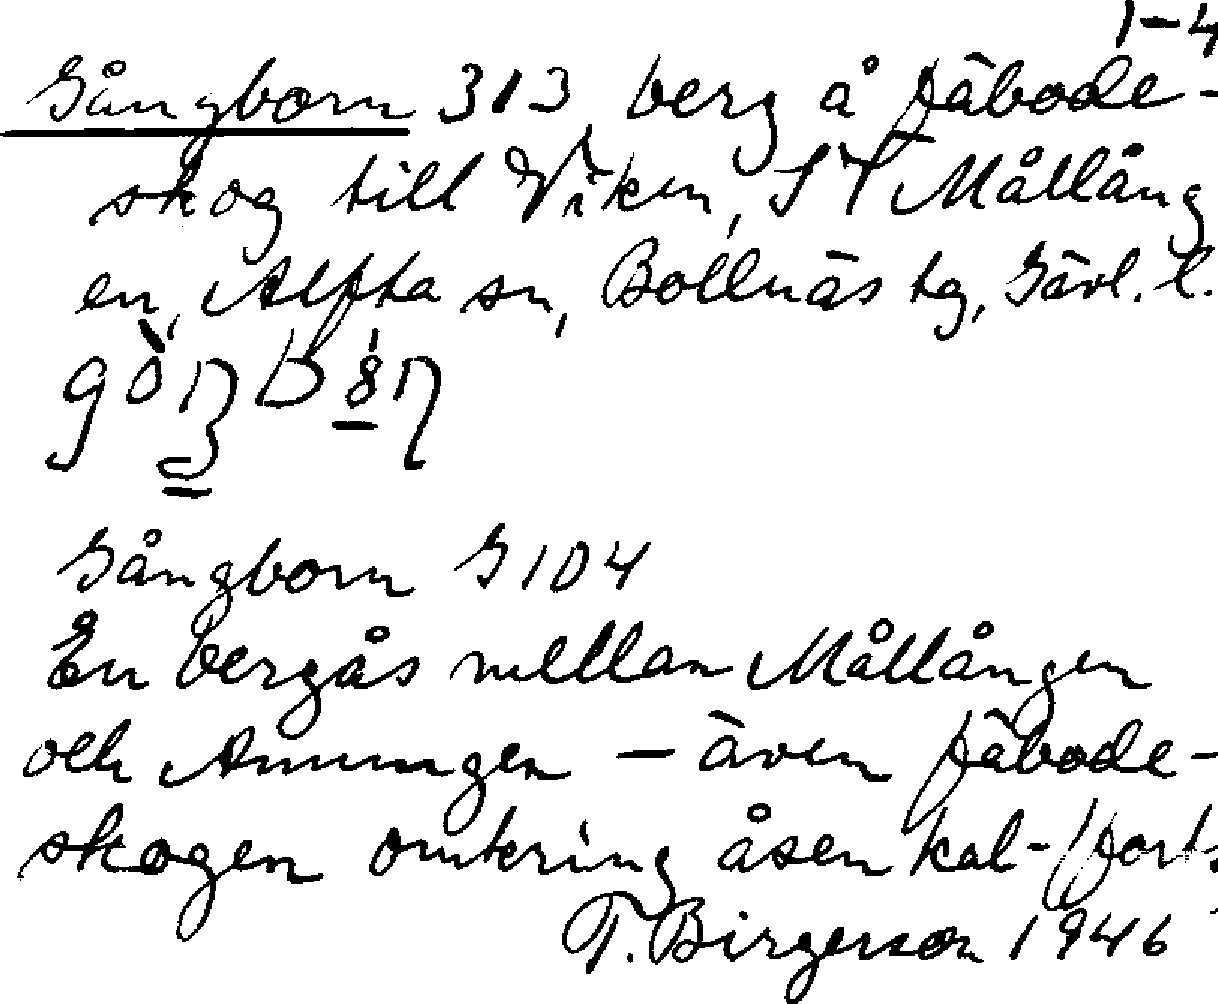 1-4
Gångborn 313 berg å fäbode-
skog till Viken, SV Mållång
en, Alfta sn, Bollnäs tg, Gävl. l.
Gångborn G 104
En bergås mellan Mållången
och Amungen – även fäbode-
skogen omkring åsen kal- (forts.
T. Birgerson 1946